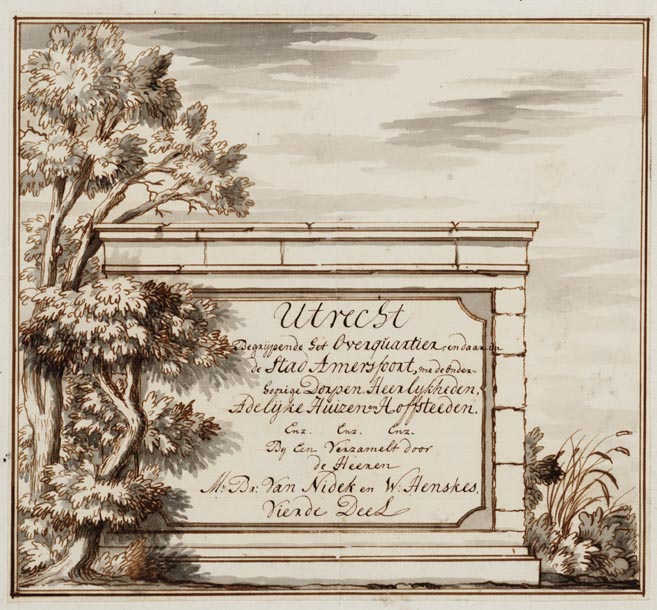 Utrecht
Begrijpende het Overquartier, en daar in
de Stad Amersfoort, me de onder-
hoorige Dorpen, Heerlykheden,
Adelijke Huizen en Hoffsteeden.
Enz. Enz. Enz.
By Een Verzamelt door
de Heeren
Mr. Br: Van Nidek en W: Henskes.
Vierde Deel